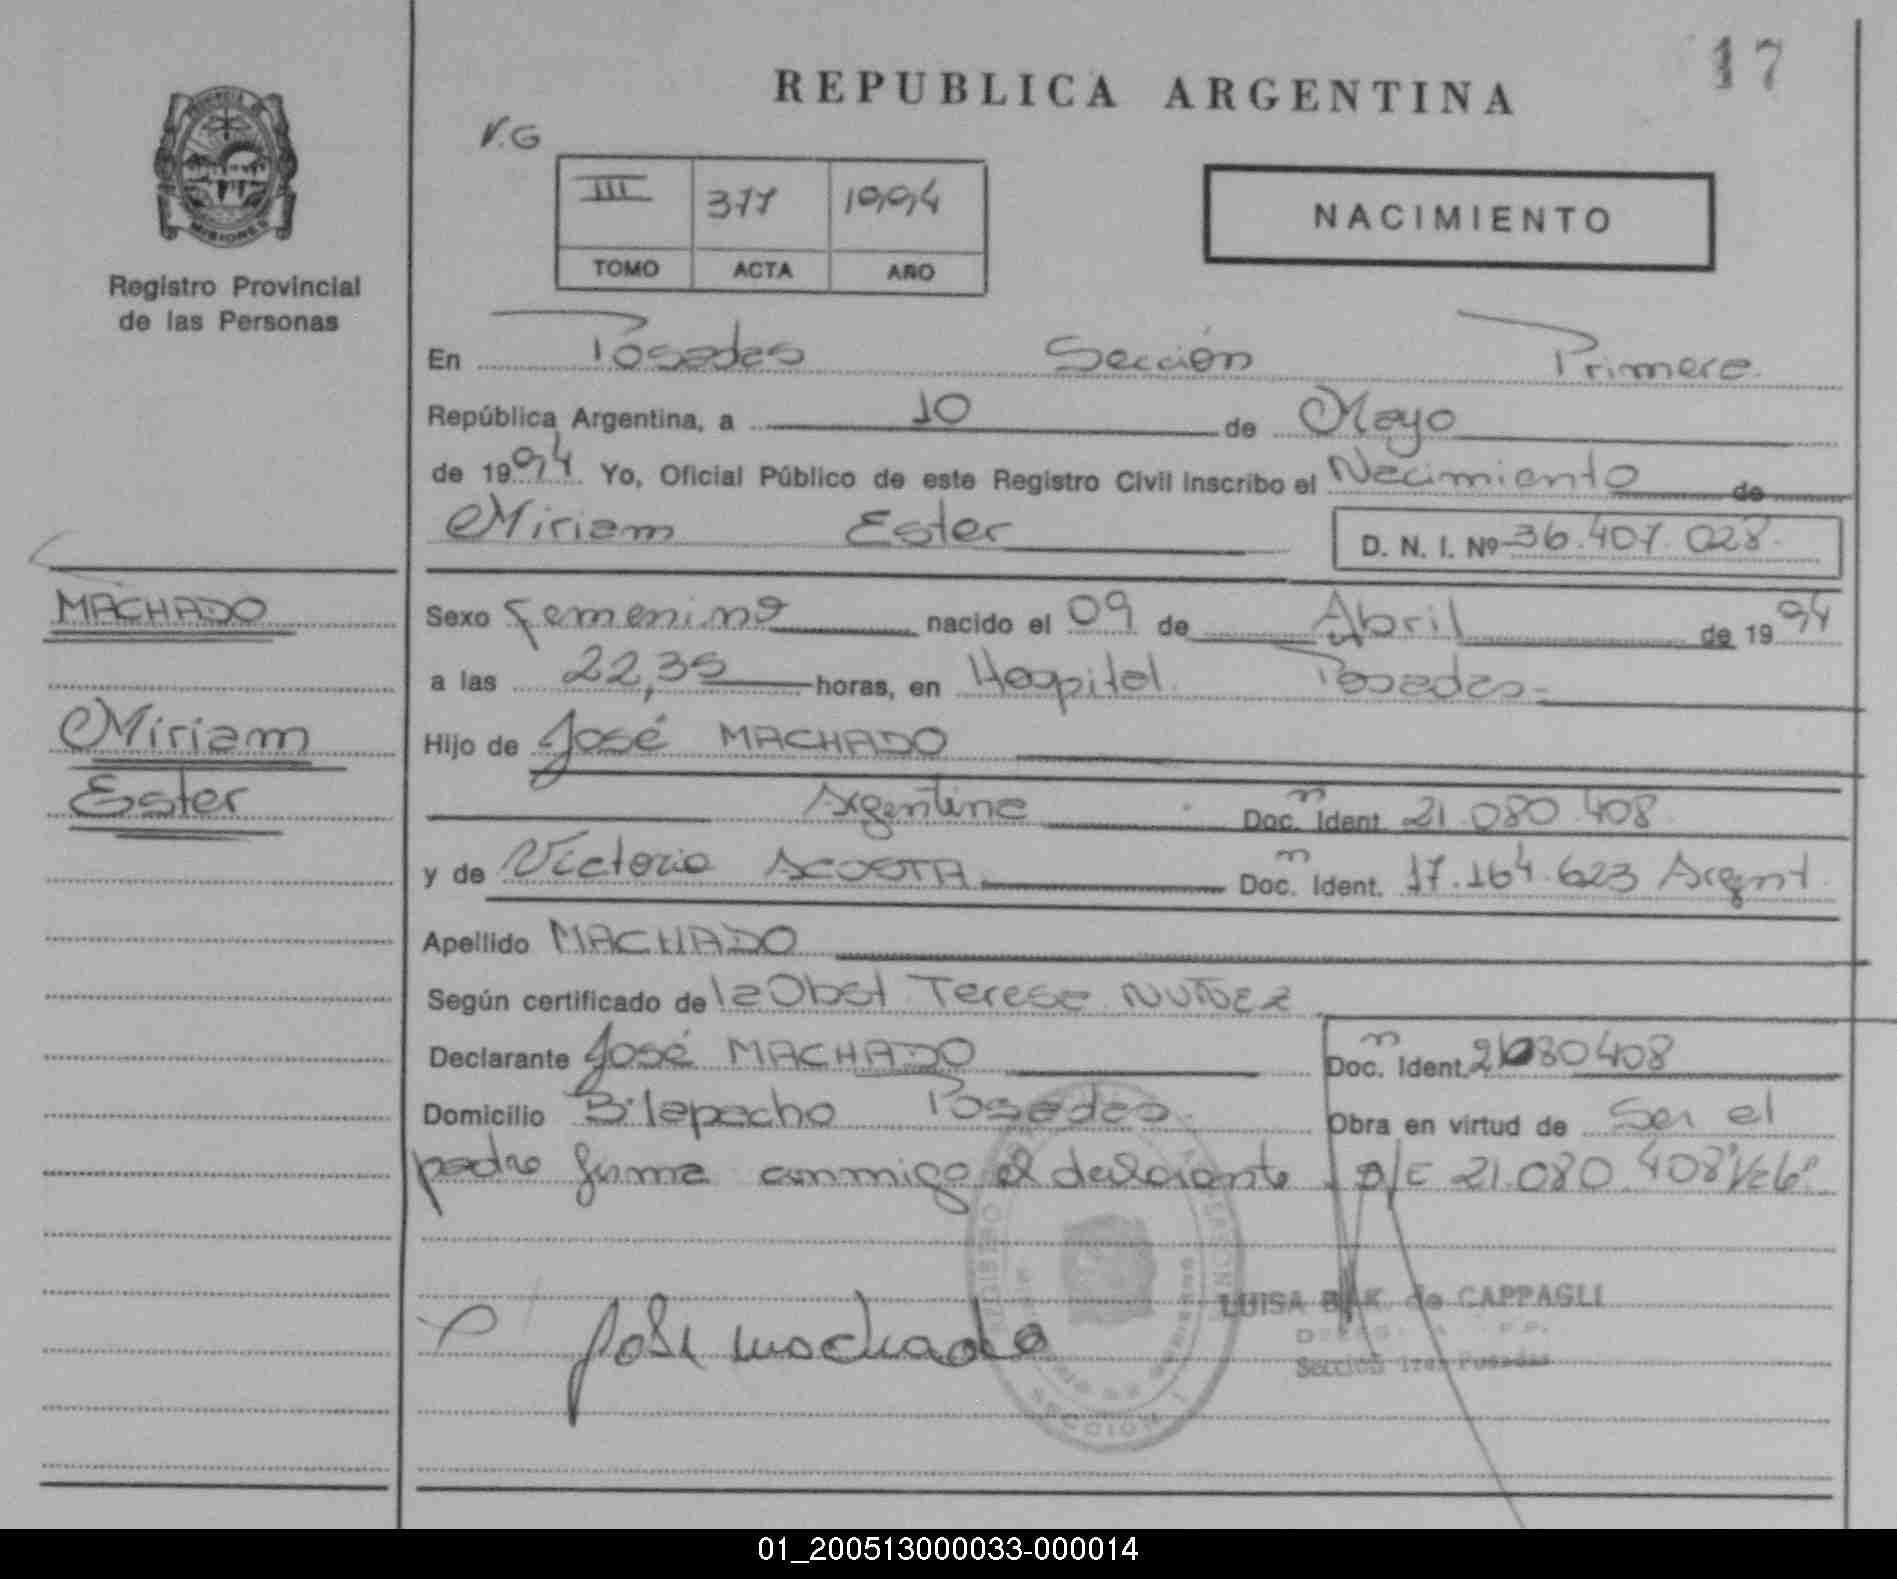 17
REPUBLICA ARGENTINA
V.G
III 377 1994
TOMO ACTA AÑO
NACIMIENTO
PROVINCIA DE
MISIONES
Registro Provincial
de las Personas
En Posadas Sección Primera
República Argentina, a 10 de Mayo
de 1994 Yo, Oficial Público de este Registro Civil inscribo el Nacimiento de
Miriam Ester D. N. I. Nº 36.407.028
MACHADO
Miriam
Ester
Sexo femenino nacido el 09 de Abril de 1994
a las 22,35 horas, en Hospital Posadas
Hijo de José MACHADO
Argentina Doc. Ident. 21.080.408
y de Victoria ACOSTA Doc. Ident. 17.164.623 Argent.
Apellido MACHADO
Según certificado de la Obst Teresa NUÑEZ
Declarante José MACHADO Doc. Ident. 21080408
Domicilio Posadas Obra en virtud de Ser el
padre firma conmigo el declarante 21.080.408
LUISA de CAPPAGLI
Sección 1ra. Posadas
José machado
SECCION 1
01_200513000033-000014